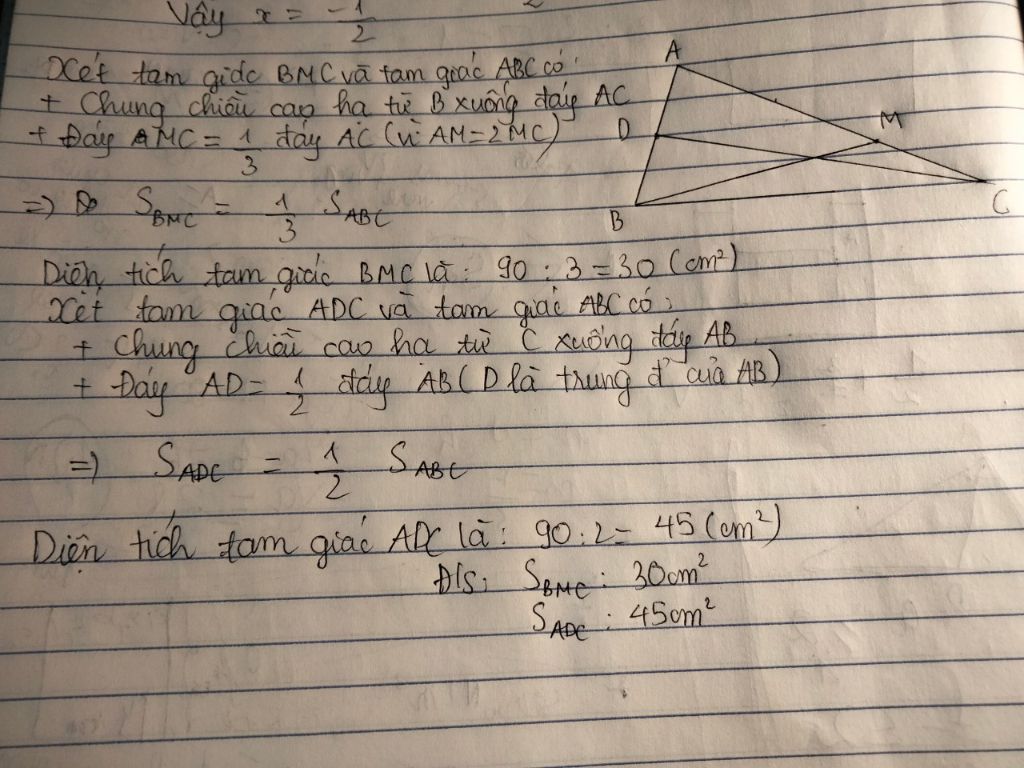 Vậy x = -1/2
Xét tam giác BMC và tam giác ABC có:
+ Chung chiều cao hạ từ B xuống đáy AC
+ Đáy MC = 1/3 đáy AC (vì AM = 2MC)
=) S_BMC = 1/3 S_ABC
Diện tích tam giác BMC là: 90 : 3 = 30 (cm²)
Xét tam giác ADC và tam giác ABC có:
+ Chung chiều cao hạ từ C xuống đáy AB.
+ Đáy AD = 1/2 đáy AB (D là trung đ' của AB)
=) S_ADC = 1/2 S_ABC
Diện tích tam giác ADC là: 90 : 2 = 45 (cm²)
Đ/S: S_BMC : 30cm²
S_ADC : 45cm²
A
D
M
B
C